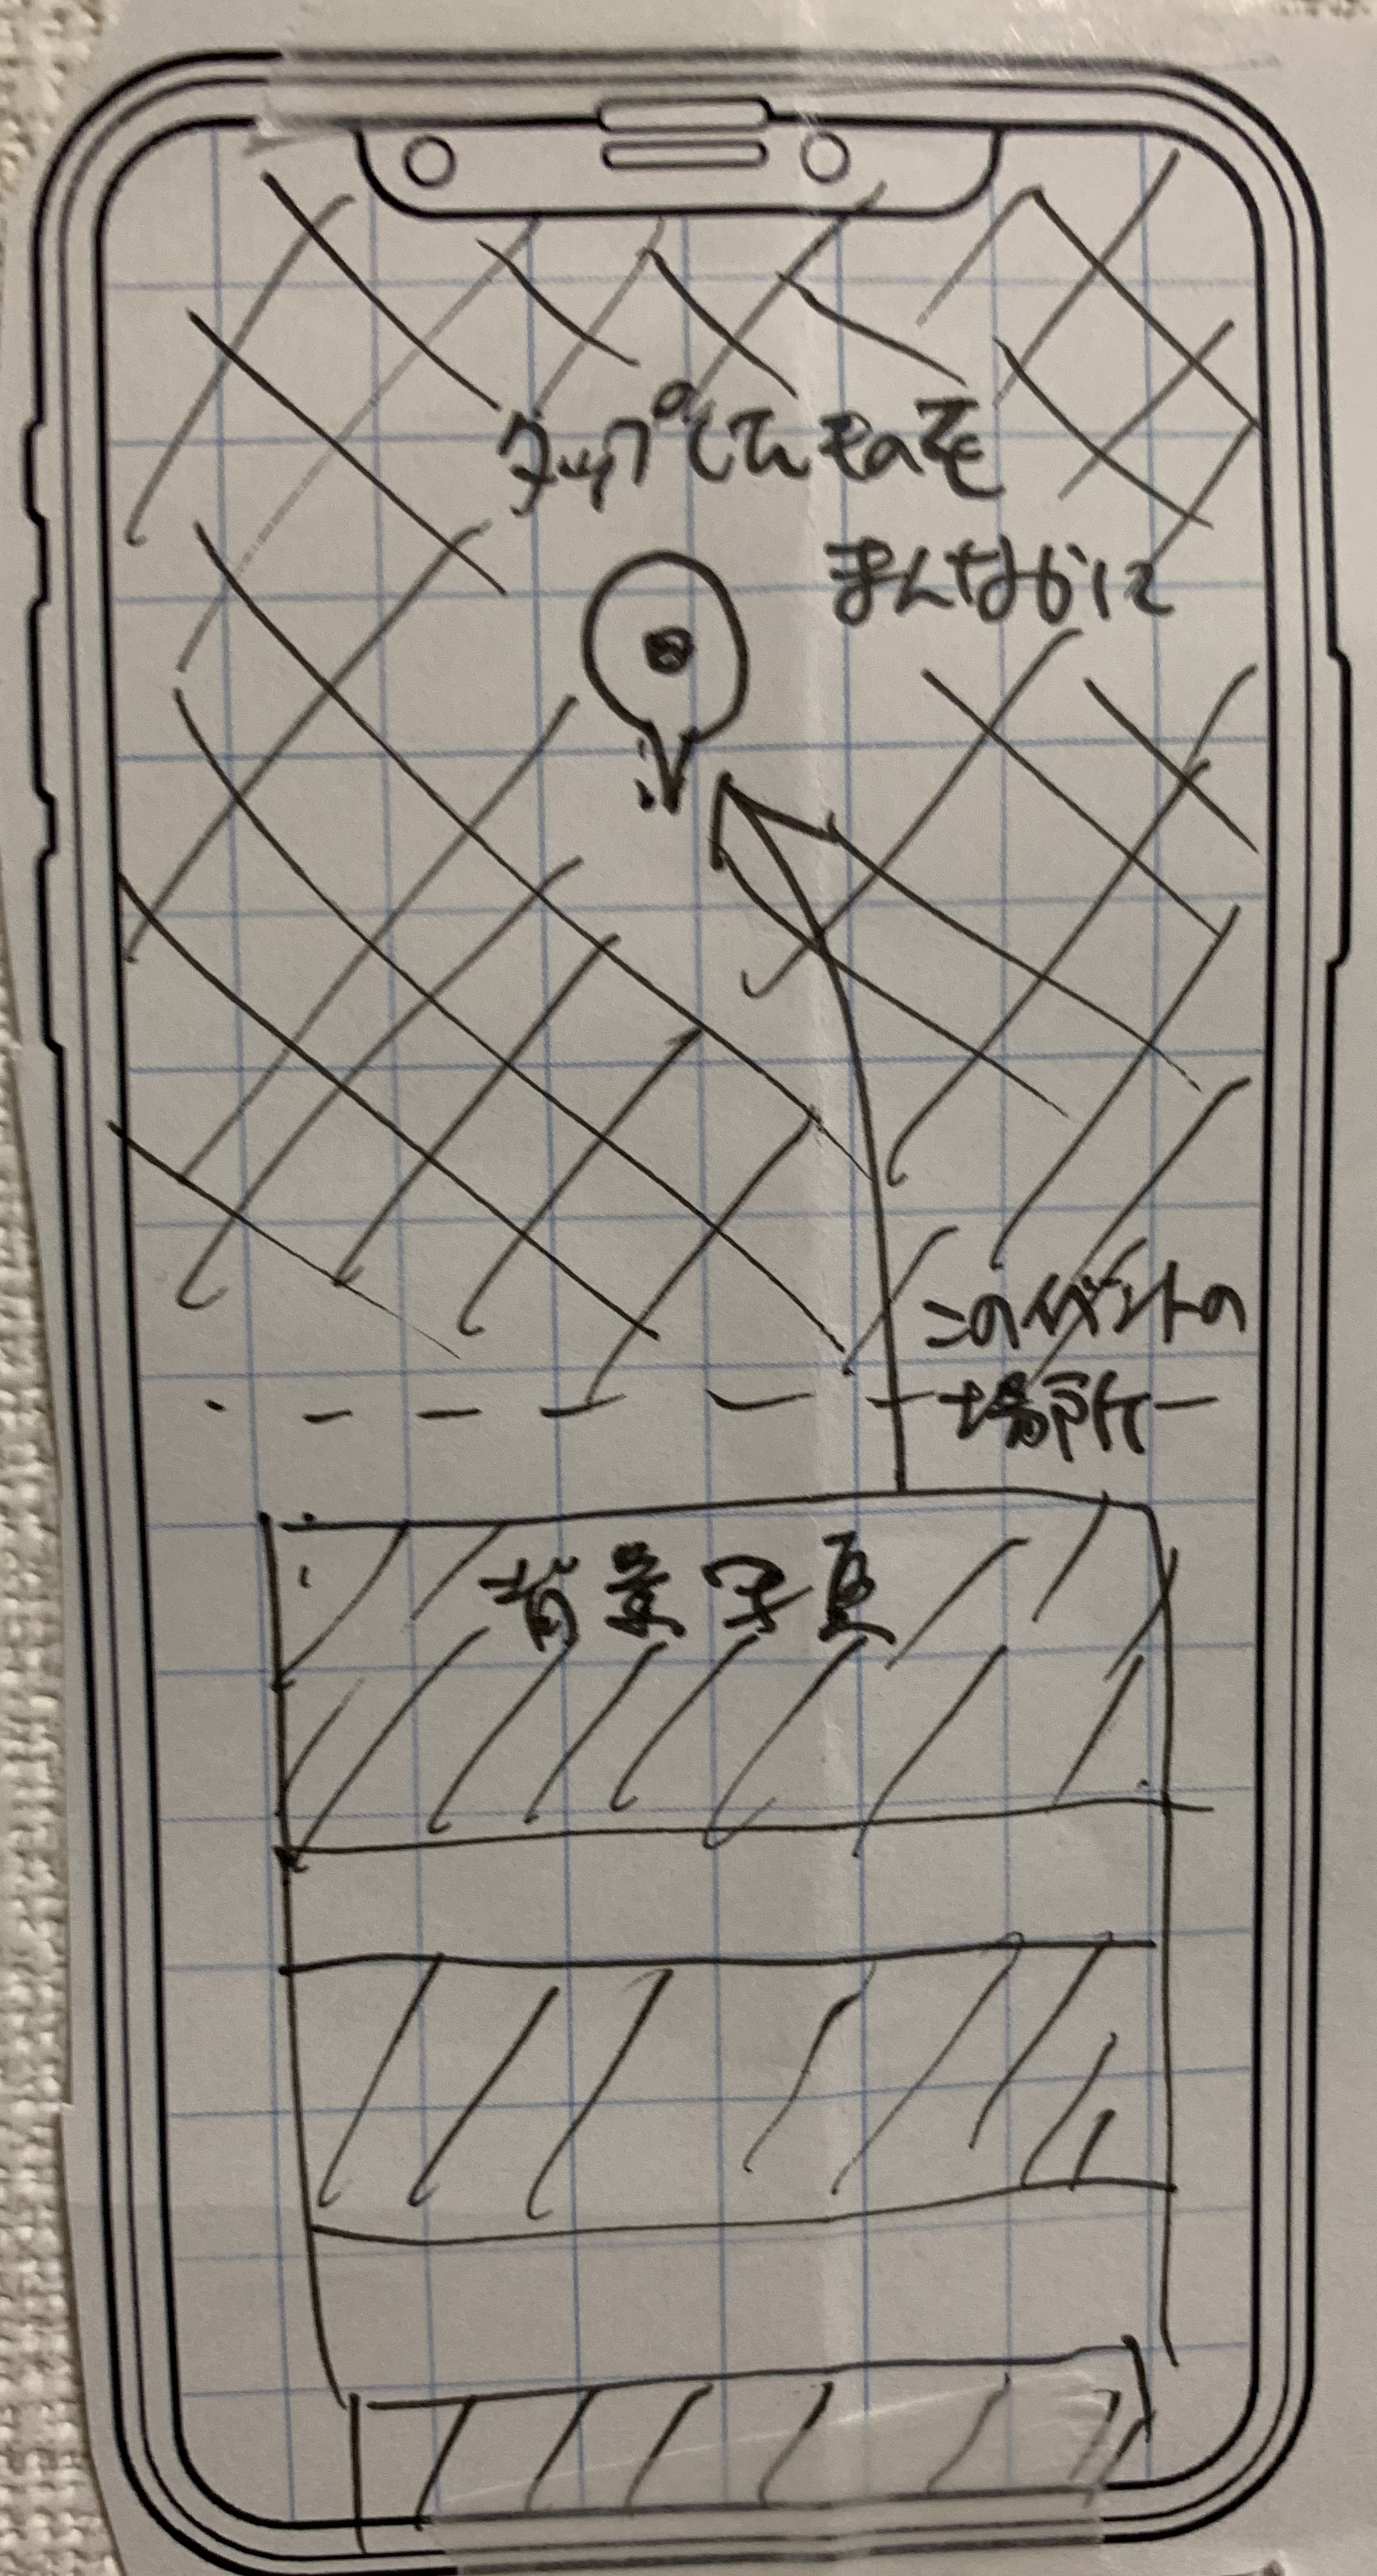 タップしてんものを
まんなかに
このイベントの
場所
背景写真